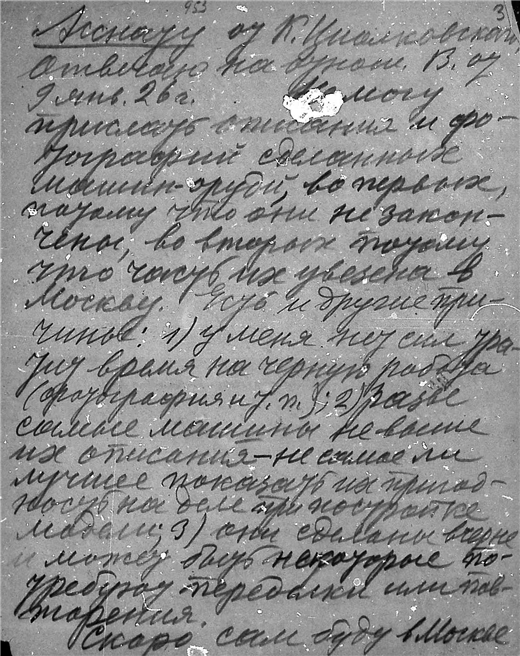 953
3
Асснату от К. Циолковского
Отвечаю на отнош. В. от
9 янв. 26 г. Не могу
прислать описания и фо-
тографий сделанных
машин-орудий, во первых,
потому что они не закон-
чены, во вторых потому
что часть их увезена в
Москву. Есть и другие при-
чины: 1) у меня нет сил тра-
тить время на черную работу
(фотография и т. п.); 2) Разве
самые машины не выше
их описания – не самое ли
лучшее показать их пригод-
ность на деле при постройке
модели; 3) они сделаны вчерне
и может быть некоторые по-
требуют переделки или пов-
торения.
Скоро сам буду в Москве